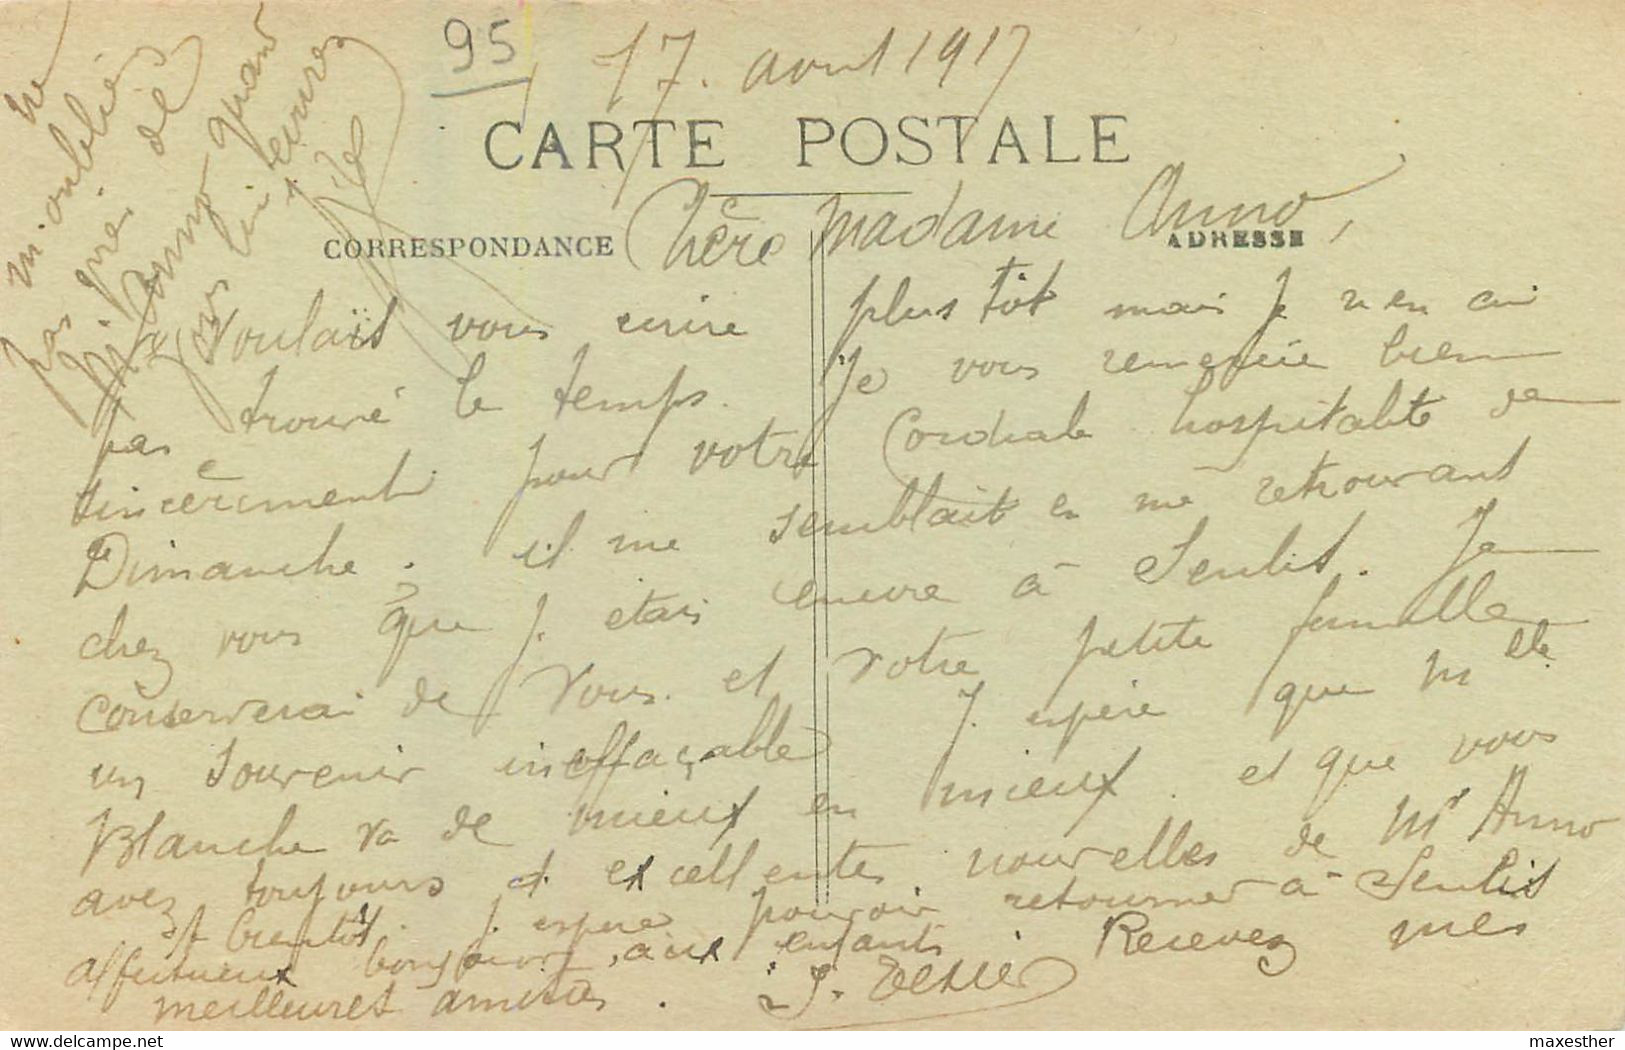 95
17. avril 1917
CARTE POSTALE
CORRESPONDANCE
ADRESSE
Chère Madame Anno,
Je voulais vous écrire plus tôt mais je n'en ai
pas trouvé le temps. Je vous remercie bien
sincèrement pour votre cordiale hospitalité de
Dimanche. il me semblait en me retrouvant
chez vous que j. étais encore à Senlis. Je
conserverai de vous et votre petite famille
un souvenir ineffaçable J. espère que Mlle
Blanche va de mieux en mieux. et que vous
avez toujours d. excellentes nouvelles de Mr Anno
bientôt. J. espère pouvoir retourner à Senlis
affectueux bonjour aux enfants. Recevez mes
meilleures amitiés. J. Texier
Ne
m'oubliez
pas près de
Mr. Anno quand
vous lui écrirez
delcampe.net
maxesther